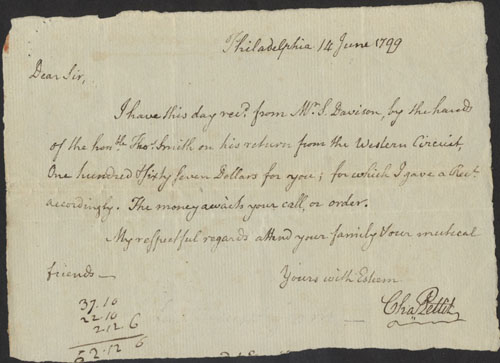 Philadelphia 14 June 1799
Dear Sir,
I have this day recd. from Mr. S. Davison, by the hands
of the honble. Thos. Smith on his return from the Western Circuit,
One hundred & fifty seven Dollars for you; for which I gave a Rect.
accordingly. The money awaits your call, or order.
My respectful regards attend your family & our mutual
friends—
Yours with Esteem
Chas. Pettit
37.10
22.10
2.12 6
62.12 6